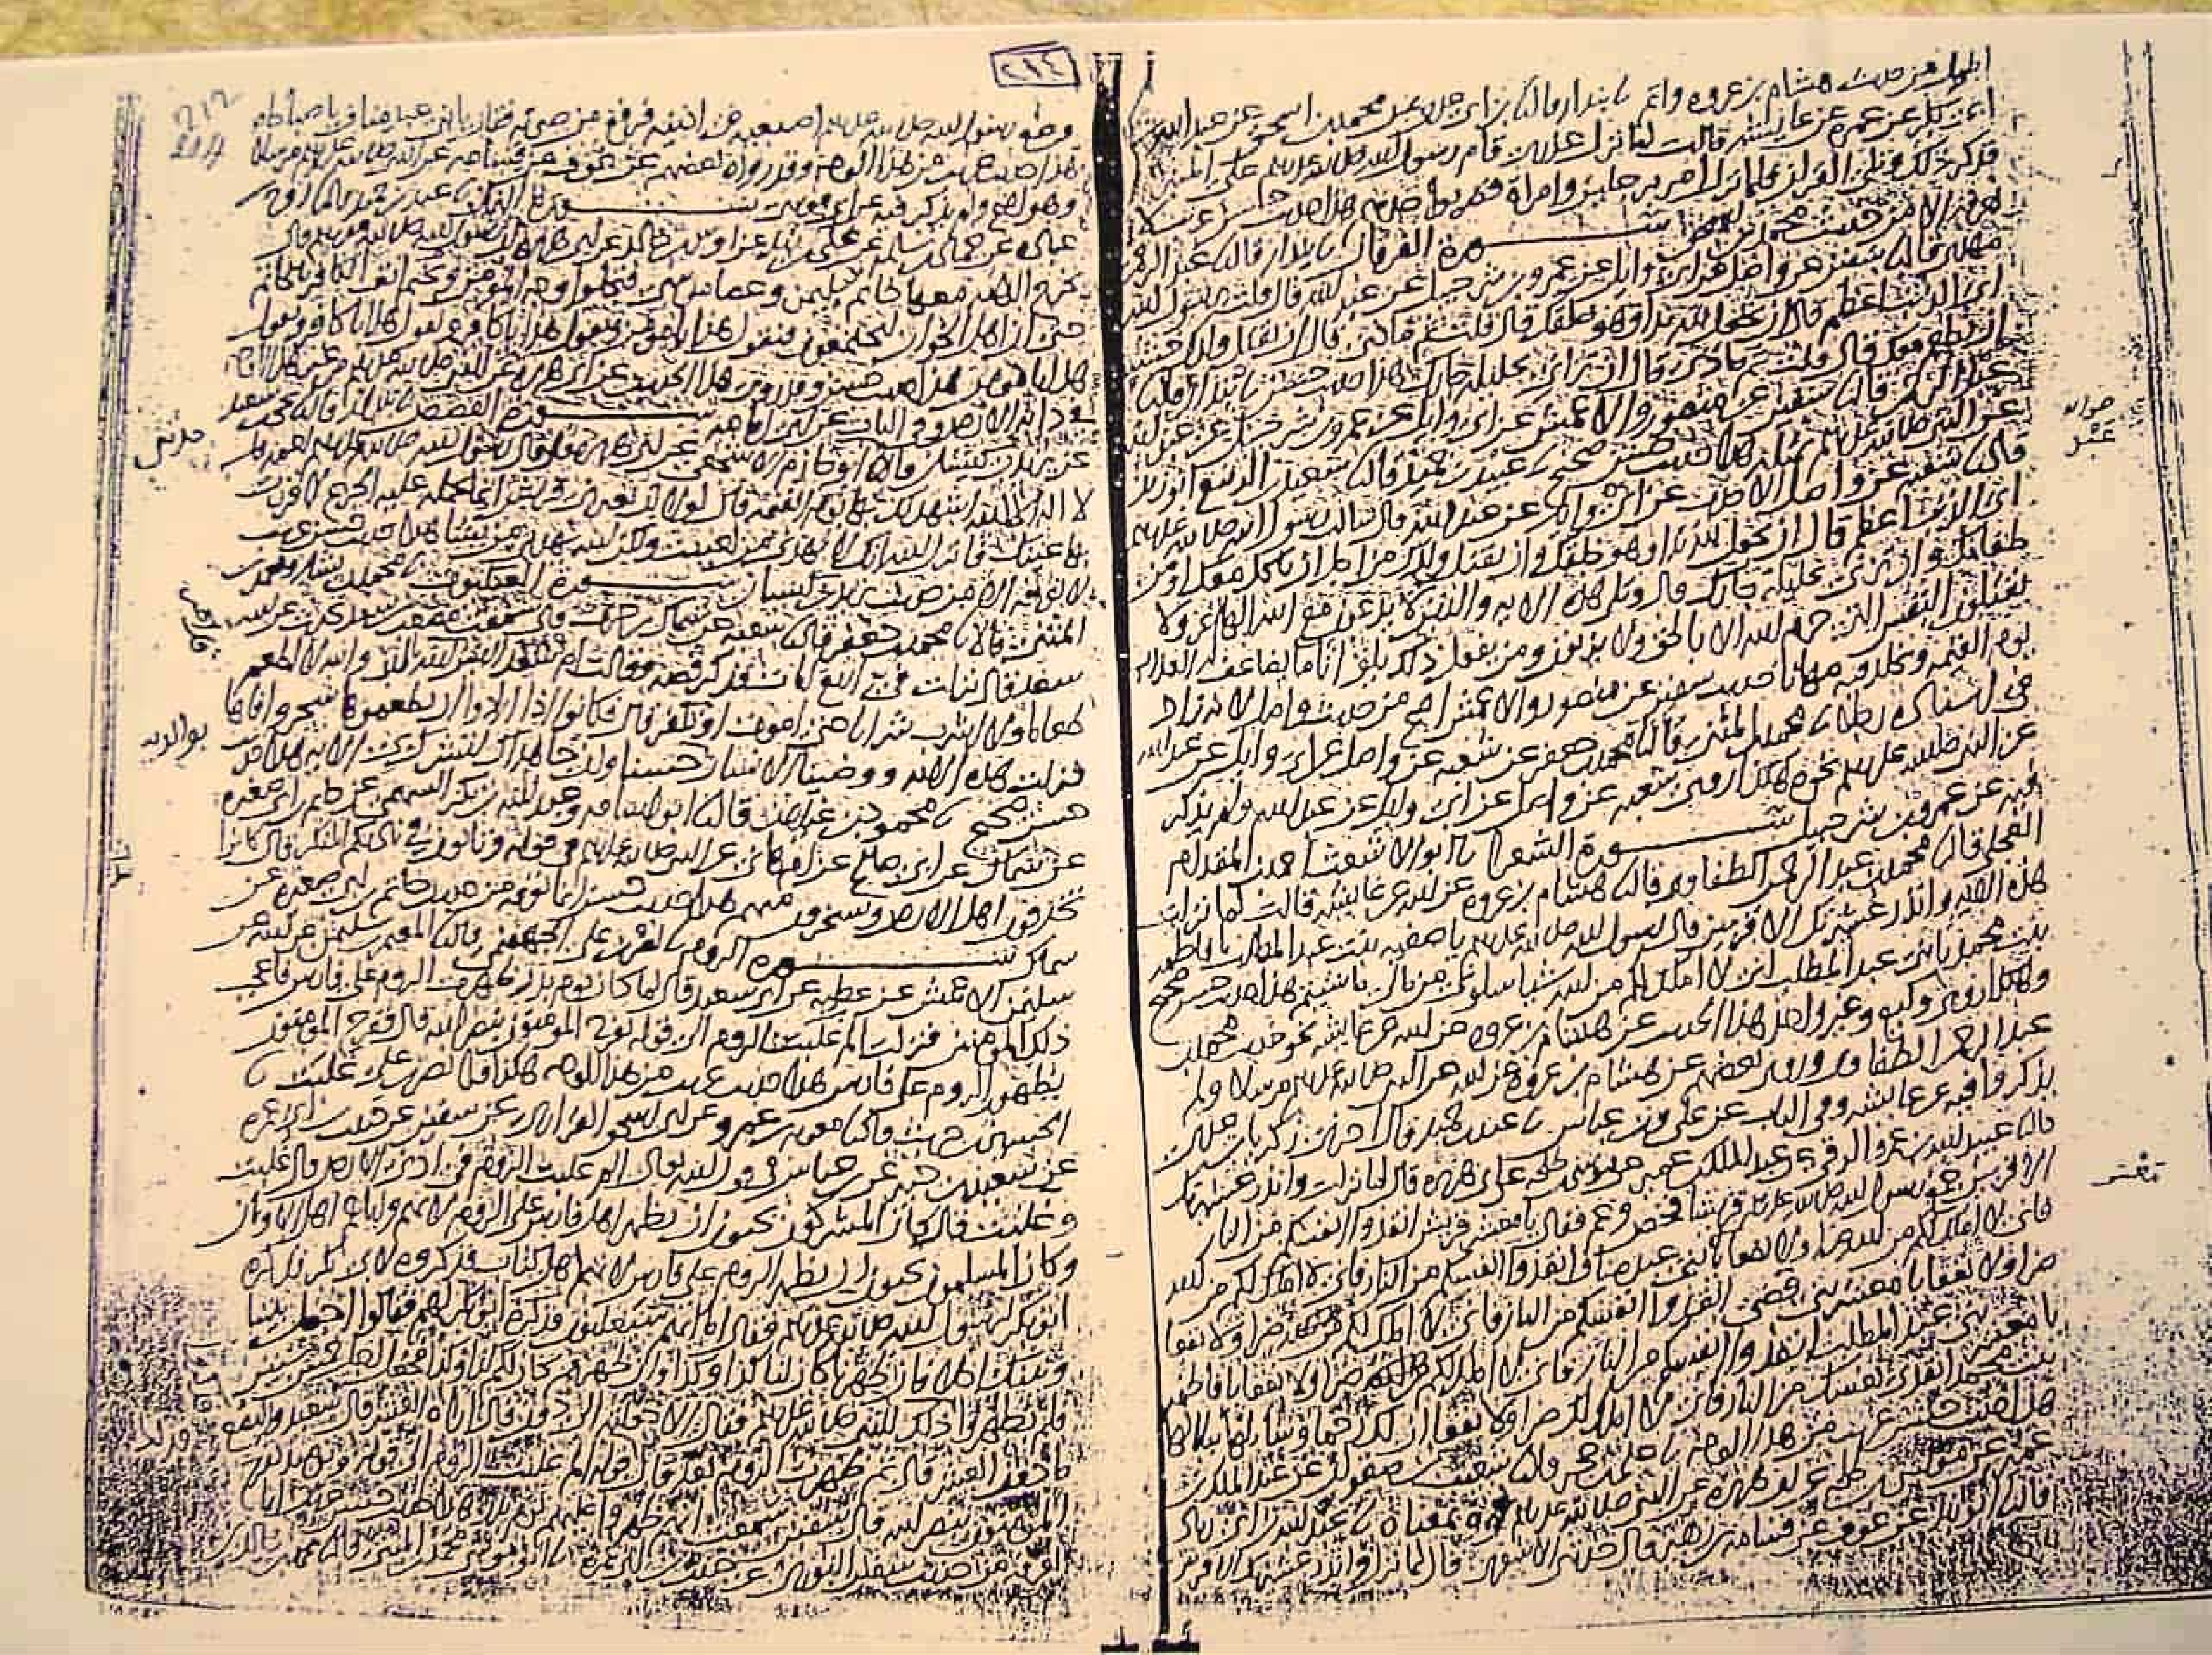 اطول من حديث هشام بن عروة واتم نا بندار قال نا ابن ابي عدي عن محمد بن اسحق عن عبد الله بن
ابي بكر عن عمرة عن عايشة قالت لما نزل عذري قام رسول الله صلى الله عليه وسلم على المنبر
فذكر ذلك وتلا القران فلما نزل امر برجلين وامراة فضربوا حدهم هذا حديث حسن غريب لا
نعرفه الا من حديث محمد بن اسحق سورة الفرقان نا بندار قال نا عبد الرحمن
مهدي قال نا سفين عن واصل عن ابي وايل عن عمرو بن شرحبيل عن عبد الله قال قلت يرسول الله
اي الذنب اعظم قال ان تجعل لله ندا وهو خلقك قال قلت ثم ماذى قال ان تقتل ولدك خشية
ان يطعم معك قال قلت ثم ماذى قال ان تزاني بحليلة جارك هذا حديث حسن نا بندار قال نا
عبد الرحمن قال نا سفين عن منصور والاعمش عن ابي وايل عن عمرو بن شرحبيل عن عبد الله
عن النبي صلى الله عليه وسلم بمثله هذا حديث حسن صحيح نا عبد بن حميد قال نا سعيد بن الربيع ابو زيد
قال نا شعبة عن واصل الاحدب عن ابي وايل عن عبد الله قال سالت رسول الله صلى الله عليه وسلم
اي الذنب اعظم قال ان تجعل لله ندا وهو خلقك وان تقتل ولدك من اجل ان ياكل معك او من
طعامك وان تزني بحليلة جارك قال وتلا هذه الاية والذين لا يدعون مع الله الها اخر ولا
يقتلون النفس التي حرم الله الا بالحق ولا يزنون ومن يفعل ذلك يلق اثاما يضاعف له العذاب
يوم القيمة ويخلد فيه مهانا حديث سفين عن منصور والاعمش اصح من حديث واصل لانه زاد
في اسناده رجلا نا محمد بن المثنى قال نا محمد بن جعفر عن شعبة عن واصل عن ابي وايل عن عبد الله
عن النبي صلى الله عليه وسلم نحوه هكذا روى شعبة عن واصل عن ابي وايل عن عبد الله ولم يذكر
فيه عن عمرو بن شرحبيل سورة الشعرا نا ابو الاشعث احمد بن المقدام
العجلي قال نا محمد بن عبد الرحمن الطفاوي قال نا هشام بن عروة عن ابيه عن عايشة قالت لما نزلت
هذه الاية وانذر عشيرتك الاقربين قال رسول الله صلى الله عليه وسلم يا صفية بنت عبد المطلب يا فاطمة
بنت محمد يا بني عبد المطلب اني لا املك لكم من الله شيا سلوني من مالي ما شيتم هذا حديث حسن صحيح
وهكذا روى وكيع وغير واحد هذا الحديث عن هشام بن عروة عن ابيه عن عايشة نحو حديث محمد بن
عبد الرحمن الطفاوي وروى بعضهم عن هشام بن عروة عن ابيه عن النبي صلى الله عليه وسلم مرسلا ولم
يذكروا فيه عن عايشة وفي الباب عن علي وابن عباس نا عبد بن حميد قال اخبرني زكريا بن عدي
قال نا عبيد الله بن عمرو الرقي عن عبد الملك بن عمير عن موسى بن طلحة عن ابي هريرة قال لما نزلت وانذر عشيرتك
الاقربين جمع رسول الله صلى الله عليه وسلم قريشا فخص وعم فقال يا معشر قريش انقذوا انفسكم من النار
فاني لا املك لكم من الله ضرا ولا نفعا يا معشر بني عبد مناف انقذوا انفسكم من النار فاني لا املك لكم من الله
ضرا ولا نفعا يا معشر بني قصي انقذوا انفسكم من النار فاني لا املك لكم ضرا ولا نفعا
يا معشر بني عبد المطلب انقذوا انفسكم من النار فاني لا املك لكم ضرا ولا نفعا يا فاطمة
بنت محمد انقذي نفسك من النار فاني لا املك لك ضرا ولا نفعا ان لك رحما وسابلها ببلالها
هذا حديث حسن غريب من هذا الوجه نا علي بن حجر قال نا شعيب بن صفوان عن عبد الملك بن
عمير عن موسى بن طلحة عن ابي هريرة عن النبي صلى الله عليه وسلم نحوه بمعناه نا عبد الله بن ابي زياد
قال نا ابو زيد عن عوف عن قسامة بن زهير قال حدثني الاشعري قال لما نزل وانذر عشيرتك الاقربين
٢١٤
وضع رسول الله صلى الله عليه وسلم اصبعيه في اذنيه فرفع من صوته فقال يا بني عبد مناف يا صباحاه
هذا حديث غريب من هذا الوجه وقد رواه بعضهم عن عوف عن قسامة عن النبي صلى الله عليه وسلم مرسلا
وهو اصح ولم يذكر فيه عن ابي موسى سورة النمل نا عبد بن حميد قال نا روح بن
عبادة عن حماد بن سلمة عن علي بن زيد عن اوس بن خالد عن ابي هريرة ان رسول الله صلى الله عليه وسلم قال
تخرج الدابة معها خاتم سليمن وعصا موسى فتجلوا وجه المؤمن وتختم انف الكافر بالخاتم
حتى ان اهل الخوان ليجتمعون فيقول هذا يا مؤمن ويقول هذا يا كافر ويقول هذا يا كافر ويقول
هذا يا مؤمن هذا حديث حسن وقد روي هذا الحديث عن ابي هريرة عن النبي صلى الله عليه وسلم من غير هذا الوجه
في دابة الارض وفي الباب عن ابي امامة سورة القصص نا بندار قال نا يحيى بن سعيد
عن يزيد بن كيسان قال نا ابو حازم الاشجعي عن ابي هريرة قال قال رسول الله صلى الله عليه وسلم لعمه قل
لا اله الا الله اشهد لك بها يوم القيمة قال لولا ان تعيرني قريش انما يحمله عليه الجزع لاقررت
بها عينك فانزل الله انك لا تهدي من احببت ولكن الله يهدي من يشا هذا حديث حسن غريب
لا نعرفه الا من حديث يزيد بن كيسان سورة العنكبوت نا محمد بن بشار ومحمد بن
المثنى قالا نا محمد بن جعفر قال نا شعبة عن سماك بن حرب قال سمعت مصعب بن سعد يحدث عن ابيه
سعد قال نزلت في اربع ايات فذكر قصة وقالت ام سعد اليس قد امر الله بالبر والله لا اطعم
طعاما ولا اشرب شرابا حتى اموت او تكفر قال فكانوا اذا ارادوا ان يطعموها شجروا فاها
فنزلت هذه الاية ووصينا الانسان حسنا وان جاهداك لتشرك بي الاية هذا حديث
حسن صحيح نا محمود بن غيلان قال نا ابو اسامة وعبد الله بن بكر السهمي عن حاتم بن ابي صغيرة
عن سماك عن ابي صالح عن ام هاني عن النبي صلى الله عليه وسلم في قوله وتاتون في ناديكم المنكر قال كانوا
يخذفون اهل الارض ويسخرون منهم هذا حديث حسن انما نعرفه من حديث حاتم بن ابي صغيرة عن
سماك سورة الروم نا نصر بن علي الجهضمي قال نا المعتمر بن سليمن عن ابيه عن
سليمن الاعمش عن عطية عن ابي سعيد قال لما كان يوم بدر ظهرت الروم على فارس فاعجب
ذلك المؤمنين فنزلت الم غلبت الروم الى قوله يفرح المؤمنون بنصر الله قال ففرح المؤمنون
بظهور الروم على فارس هذا حديث غريب من هذا الوجه هكذا قرا نصر بن علي غلبت نا
الحسين بن حريث قال نا معوية بن عمرو عن ابي اسحق الفزاري عن سفين عن حبيب بن ابي عمرة
عن سعيد بن جبير عن ابن عباس في قول الله تعالى الم غلبت الروم في ادنى الارض قال غلبت
وغلبت قال كان المشركون يحبون ان يظهر اهل فارس على الروم لانهم واياهم اهل الاوثان
وكان المسلمون يحبون ان يظهر الروم على فارس لانهم اهل كتاب فذكروه لابي بكر فذكره
ابو بكر لرسول الله صلى الله عليه وسلم فقال اما انهم سيغلبون فذكره ابو بكر لهم فقالوا اجعل بيننا
وبينك اجلا فان ظهرنا كان لنا كذا وكذا وان ظهرتم كان لكم كذا وكذا فجعل اجل خمس سنين
فلم يظهروا فذكر ذلك للنبي صلى الله عليه وسلم فقال الا جعلته الى دون قال اراه العشر قال سعيد والبضع
ما دون العشر قال ثم ظهرت الروم بعد قال فذلك قوله الم غلبت الروم الى قوله ويومئذ يفرح
المؤمنون بنصر الله قال سفين سمعت انهم ظهروا عليهم يوم بدر هذا حديث حسن